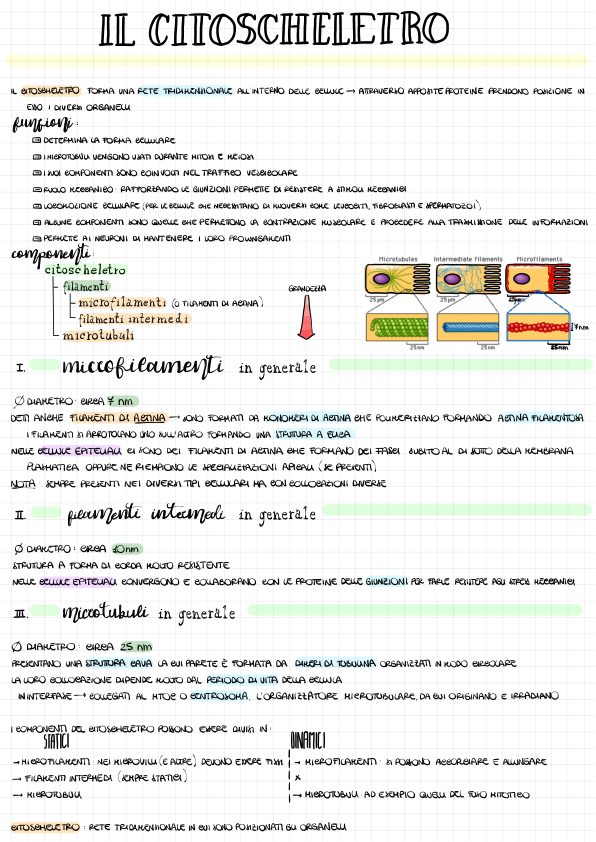 IL CITOSCHELETRO
IL CITOSCHELETRO FORMA UNA RETE TRIDIMENSIONALE ALL'INTERNO DELLE CELLULE → ATTRAVERSO APPOSITE PROTEINE PRENDONO POSIZIONE IN
ESSO I DIVERSI ORGANELLI
funzioni:
DETERMINA LA FORMA CELLULARE
I MICROTUBULI VENGONO USATI DURANTE MITOSI E MEIOSI
I SUOI COMPONENTI SONO COINVOLTI NEL TRAFFICO VESCICOLARE
RUOLO MECCANICO: RAFFORZANDO LE GIUNZIONI PERMETTE DI RESISTERE A STIMOLI MECCANICI
LOCOMOZIONE CELLULARE (PER LE CELLULE CHE NECESSITANO DI MUOVERSI COME LEUCOCITI, FIBROBLASTI E SPERMATOZOI)
ALCUNE COMPONENTI SONO QUELLE CHE PERMETTONO LA CONTRAZIONE MUSCOLARE E PROCEDERE ALLA TRASMISSIONE DELLE INFORMAZIONI
PERMETTE AI NEURONI DI MANTENERE I LORO PROLUNGAMENTI
componenti:
citoscheletro
filamenti
microfilamenti (O FILAMENTI DI ACTINA)
filamenti intermedi
microtubuli
GRANDEZZA
Microtubules Intermediate filaments Microfilaments
25µm 25µm 25µm
25nm 25nm 25nm
7nm
I. microfilamenti in generale
Ø DIAMETRO: CIRCA 7 nm
DETTI ANCHE FILAMENTI DI ACTINA → SONO FORMATI DA MONOMERI DI ACTINA CHE POLIMERIZZANO FORMANDO ACTINA FILAMENTOSA
I FILAMENTI SI ARROTOLANO UNO SULL'ALTRO FORMANDO UNA STRUTTURA A ELICA
NELLE CELLULE EPITELIALI CI SONO DEI FILAMENTI DI ACTINA CHE FORMANO DEI FASCI SUBITO AL DI SOTTO DELLA MEMBRANA
PLASMATICA OPPURE NE RIEMPIONO LE SPECIALIZZAZIONI APICALI (SE PRESENTI)
NOTA: SEMPRE PRESENTI NEI DIVERSI TIPI CELLULARI MA CON COLLOCAZIONI DIVERSE
II. filamenti intermedi in generale
Ø DIAMETRO: CIRCA 10nm
STRUTTURA A FORMA DI CORDA MOLTO RESISTENTE
NELLE CELLULE EPITELIALI CONVERGONO E COLLABORANO CON LE PROTEINE DELLE GIUNZIONI PER FARLE RESISTERE AGLI STRESS MECCANICI
III. microtubuli in generale
Ø DIAMETRO: CIRCA 25 nm
PRESENTANO UNA STRUTTURA CAVA LA CUI PARETE È FORMATA DA DIMERI DI TUBULINA ORGANIZZATI IN MODO CIRCOLARE
LA LORO COLLOCAZIONE DIPENDE MOLTO DAL PERIODO DI VITA DELLA CELLULA
IN INTERFASE → COLLEGATI AL MTOC O CENTROSOMA, L'ORGANIZZATORE MICROTUBULARE, DA CUI ORIGINANO E IRRADIANO
I COMPONENTI DEL CITOSCHELETRO POSSONO ESSERE DIVISI IN:
STATICI DINAMICI
→ MICROFILAMENTI: NEI MICROVILLI (E ALTRE) DEVONO ESSERE FISSI → MICROFILAMENTI: SI POSSONO ACCORCIARE E ALLUNGARE
→ FILAMENTI INTERMEDI (SEMPRE STATICI) X
→ MICROTUBULI → MICROTUBULI: AD ESEMPIO QUELLI DEL FUSO MITOTICO
CITOSCHELETRO: RETE TRIDIMENSIONALE IN CUI SONO POSIZIONATI GLI ORGANELLI